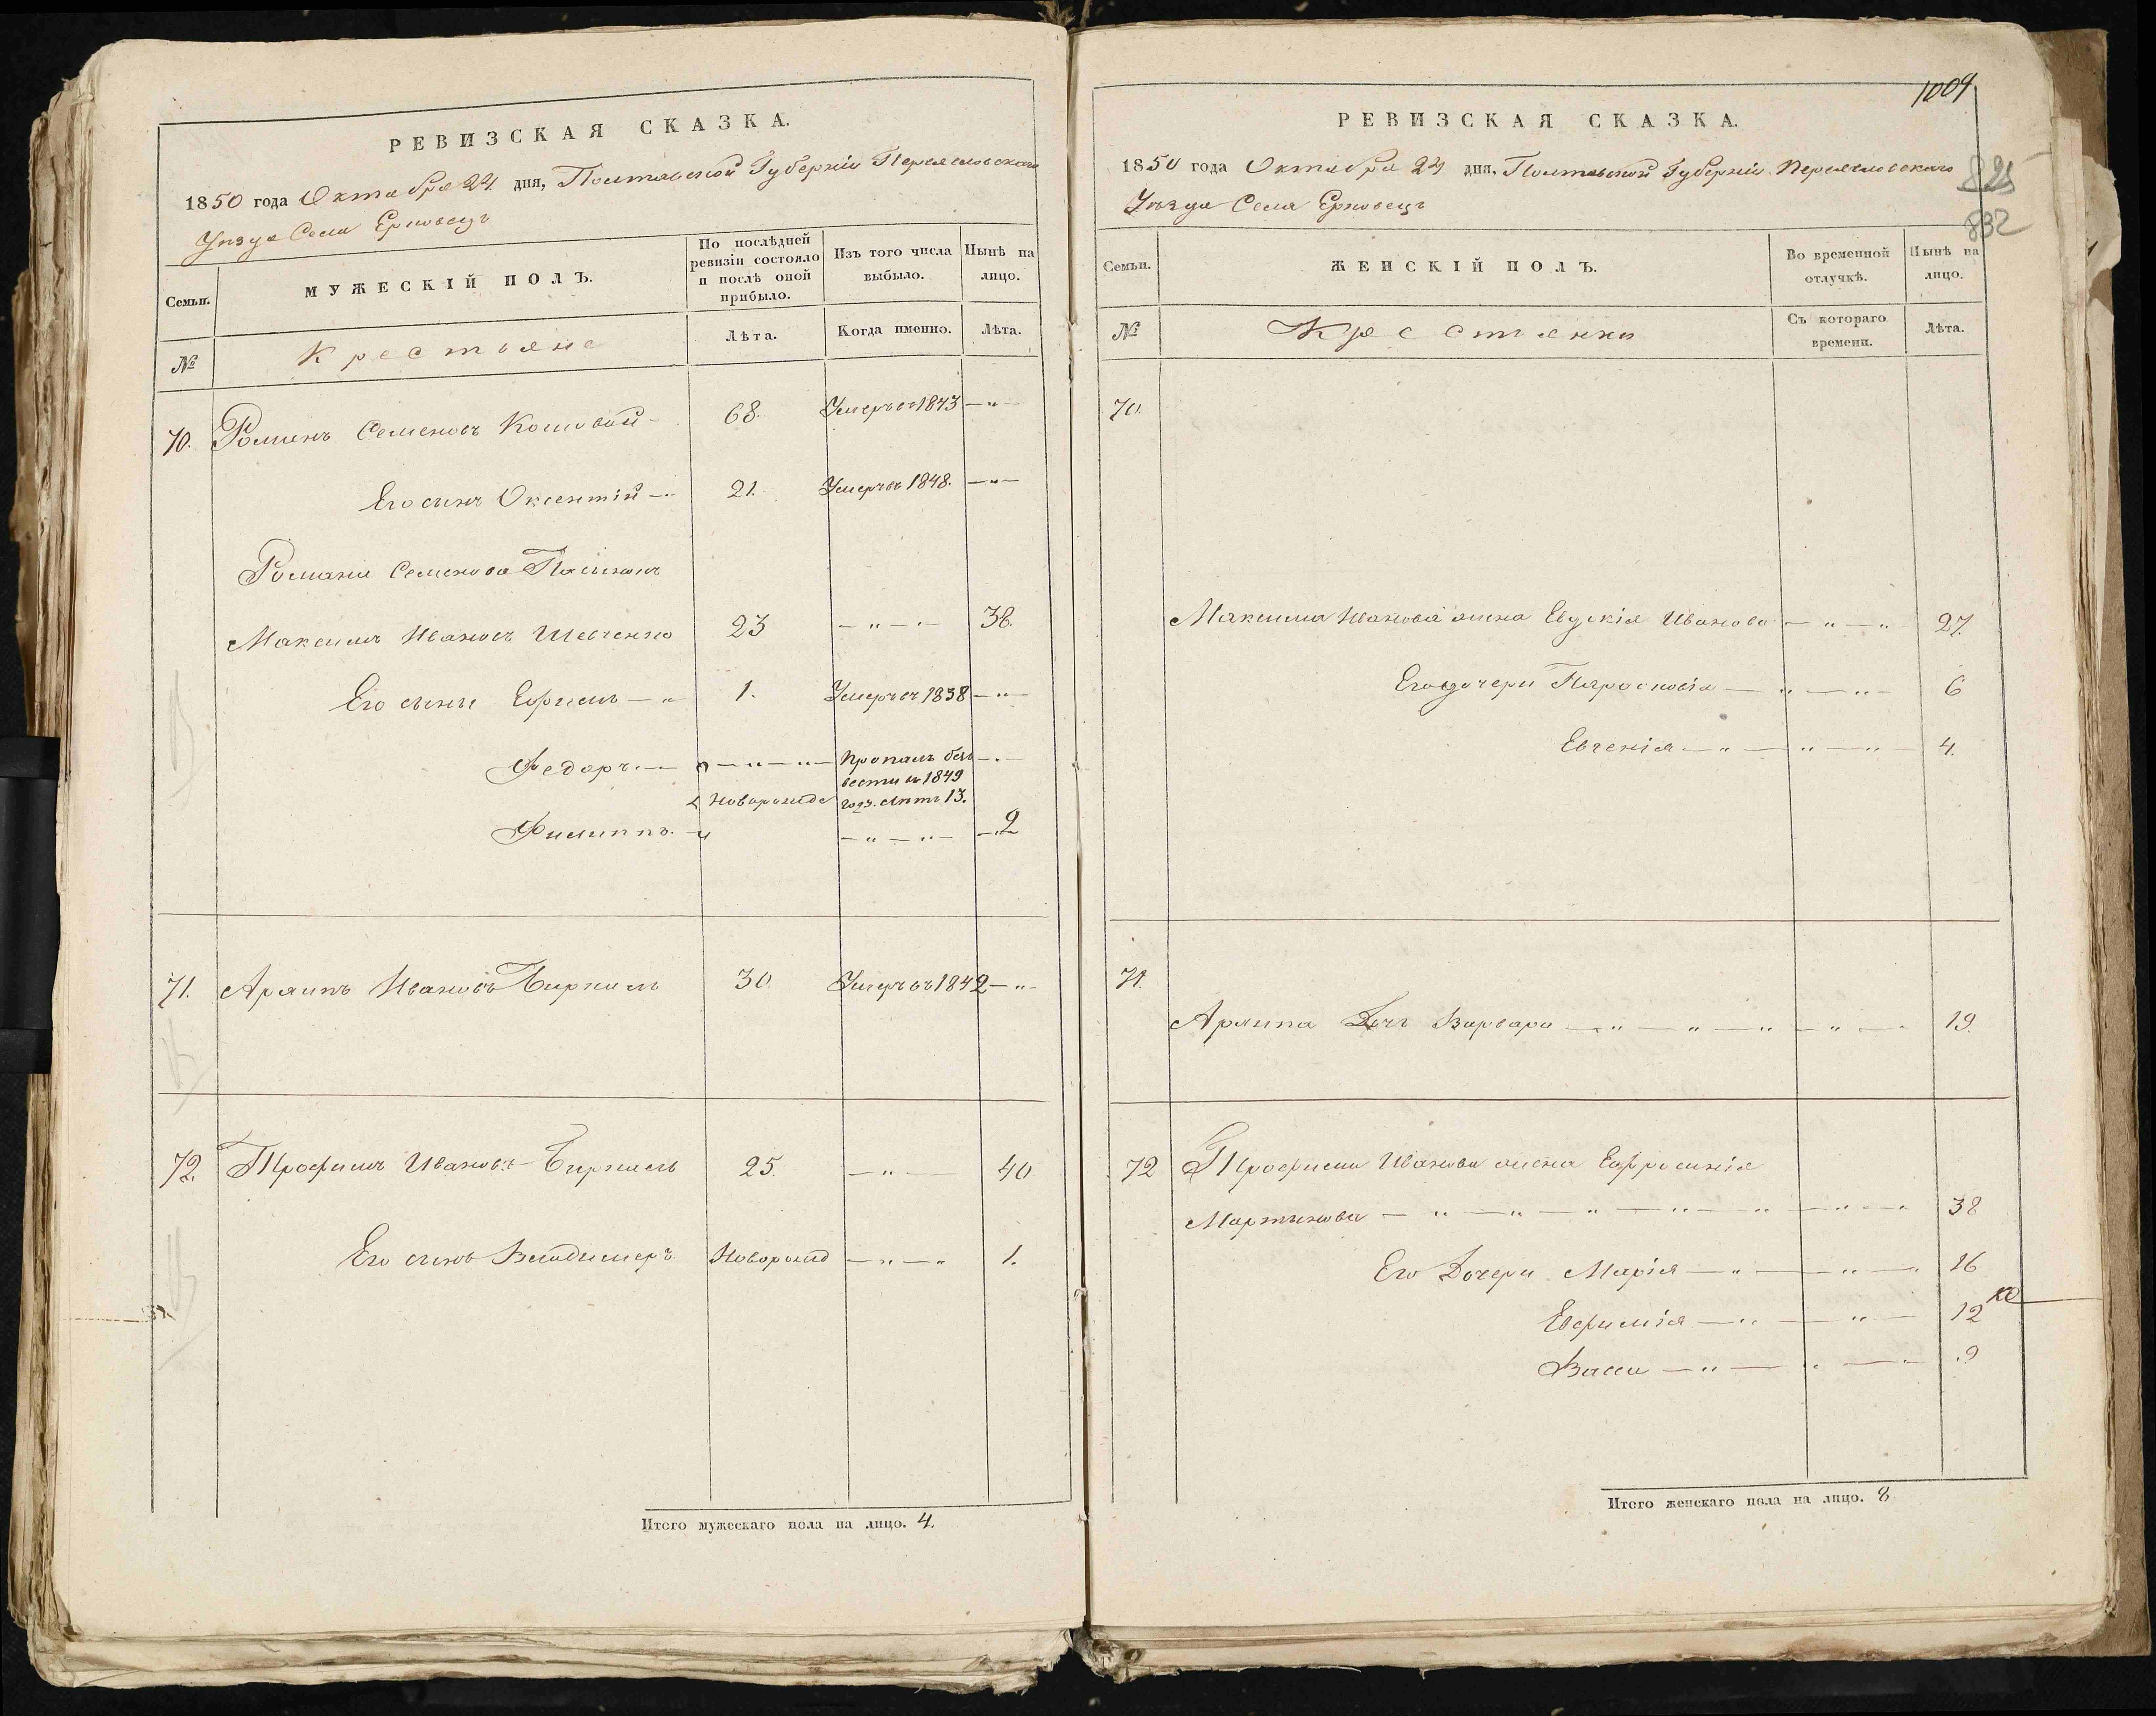 РЕВИЗСКАЯ СКАЗКА.
1850 года Октября 24 дня, Полтавской Губерніи Переяславскаго
Уѣзда Села Ерковецъ
Семьи.
МУЖЕСКІЙ ПОЛЪ.
По послѣдней ревизіи состояло и послѣ оной прибыло.
Изъ того числа выбыло.
Нынѣ на лицо.
№
Крестьяне
Лѣта.
Когда именно.
Лѣта.
70. Романъ Семеновъ 68. Умеръ въ 1843 — " —
Его сынъ Оксентій — 21. Умеръ въ 1848. — " —
Романа Семенова
Максимъ Ивановъ Шевченко 23 — " — 36.
Его сыны Ефимъ — " 1. Умеръ въ 1838 — " —
Федоръ — " — " — Пропалъ безъ вести въ 1849 году. Лѣтъ 13. — " —
Новорожде
Филиппъ. — " — " — 2
71. Архипъ Ивановъ 30. Умеръ въ 1842 — " —
72. Трофимъ Ивановъ 25. — " — 40
Его сынъ Владимеръ Новорожд — " — " 1.
Итого мужескаго пола на лицо. 4.
1009
825
832
РЕВИЗСКАЯ СКАЗКА.
1850 года Октября 24 дня, Полтавской Губерніи Переяславскаго
Уѣзда Села Ерковецъ
Семьи.
ЖЕНСКІЙ ПОЛЪ.
Во временной отлучкѣ.
Нынѣ на лицо.
№
Крестьянки
Съ котораго времени.
Лѣта.
70.
Максима Иванова жена Евдокія Иванова — " — " 27.
Его дочери Парасковія — " — " — 6
Евгенія — " — " — " — 4.
71.
Архипа Дочь Варвара — " — " — " — " — 19.
72 Трофима Иванова жена Ефросинія
Мартинова — " — " — " — " — " — " — " 38
Его Дочери Марія — " — " — " 16
Евфимія — " — " — 12
Васса — " — " — 9
Итого женскаго пола на лицо. 8